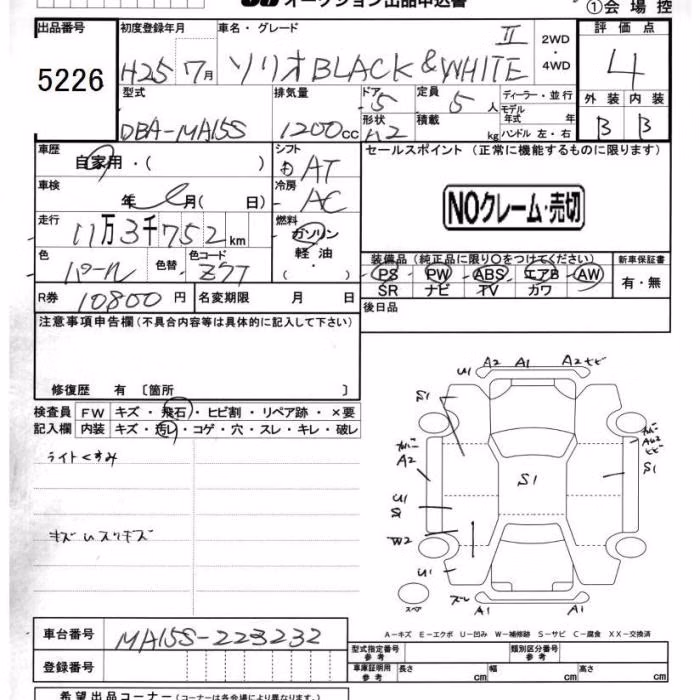 オークション出品申込書
①会場控
出品番号
5226
初度登録年月
H25 7月
車名・グレード
ソリオ BLACK & WHITE II
2WD・4WD
評価点
4
外装 内装
B B
型式
DBA-MA15S
排気量
1200cc
ドア 5
形状 H2
定員 5人
積載 kg
ディーラー・並行
モデル年式 年
ハンドル 左・右
車歴
自家用・( )
シフト
AT
セールスポイント (正常に機能するものに限ります)
NOクレーム・売切
車検
年 月( 日)
冷房
AC
走行
11万3千752km
燃料
ガソリン
軽油
・( )
色
パール
色替
色コード
Z7T
装備品(純正品に限り○をつけてください)
PS PW ABS エアB AW
SR ナビ TV カワ
新車保証書
有・無
R券 10800円
名変期限 月 日
後日品
注意事項申告欄(不具合内容等は具体的に記入して下さい)
修復歴 有 〔箇所 〕
検査員 FW キズ・飛石・ヒビ割・リペア跡・×要
記入欄 内装 キズ・汚レ・コゲ・穴・スレ・キレ・破レ
ライトくすみ
キズ U スリキズ
U1 A2 A1 A2 ヒビ
S1
A2
S1
S1
U1
W2
U1
スペア
ズレ A1 A1
A-キズ E-エクボ U-凹み W-補修跡 S-サビ C-腐食 XX-交換済
車台番号
MA15S-223232
登録番号
型式指定番号 参考
類別区分番号 参考
車庫証明用 参考
長さ cm 幅 cm 高さ cm
希望出品コーナー(コーナーは各会場により異なります。)